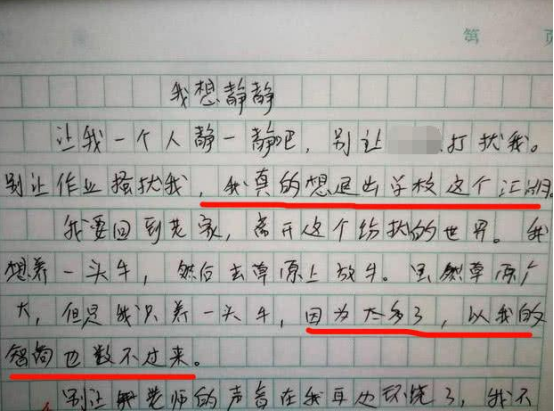 第 页
我想静静
让我一个人静一静吧，别让 打扰我。
别让作业搔扰我，我真的想退出学校这个江湖。
我要回到老家，离开这个纷扰的世界。我
想养一头牛，然后去草原上放牛。虽然草原广
大，但是我只养一头牛，因为太多了，以我的
智商也数不过来。
别让老师的声音在我耳边环绕了，我不